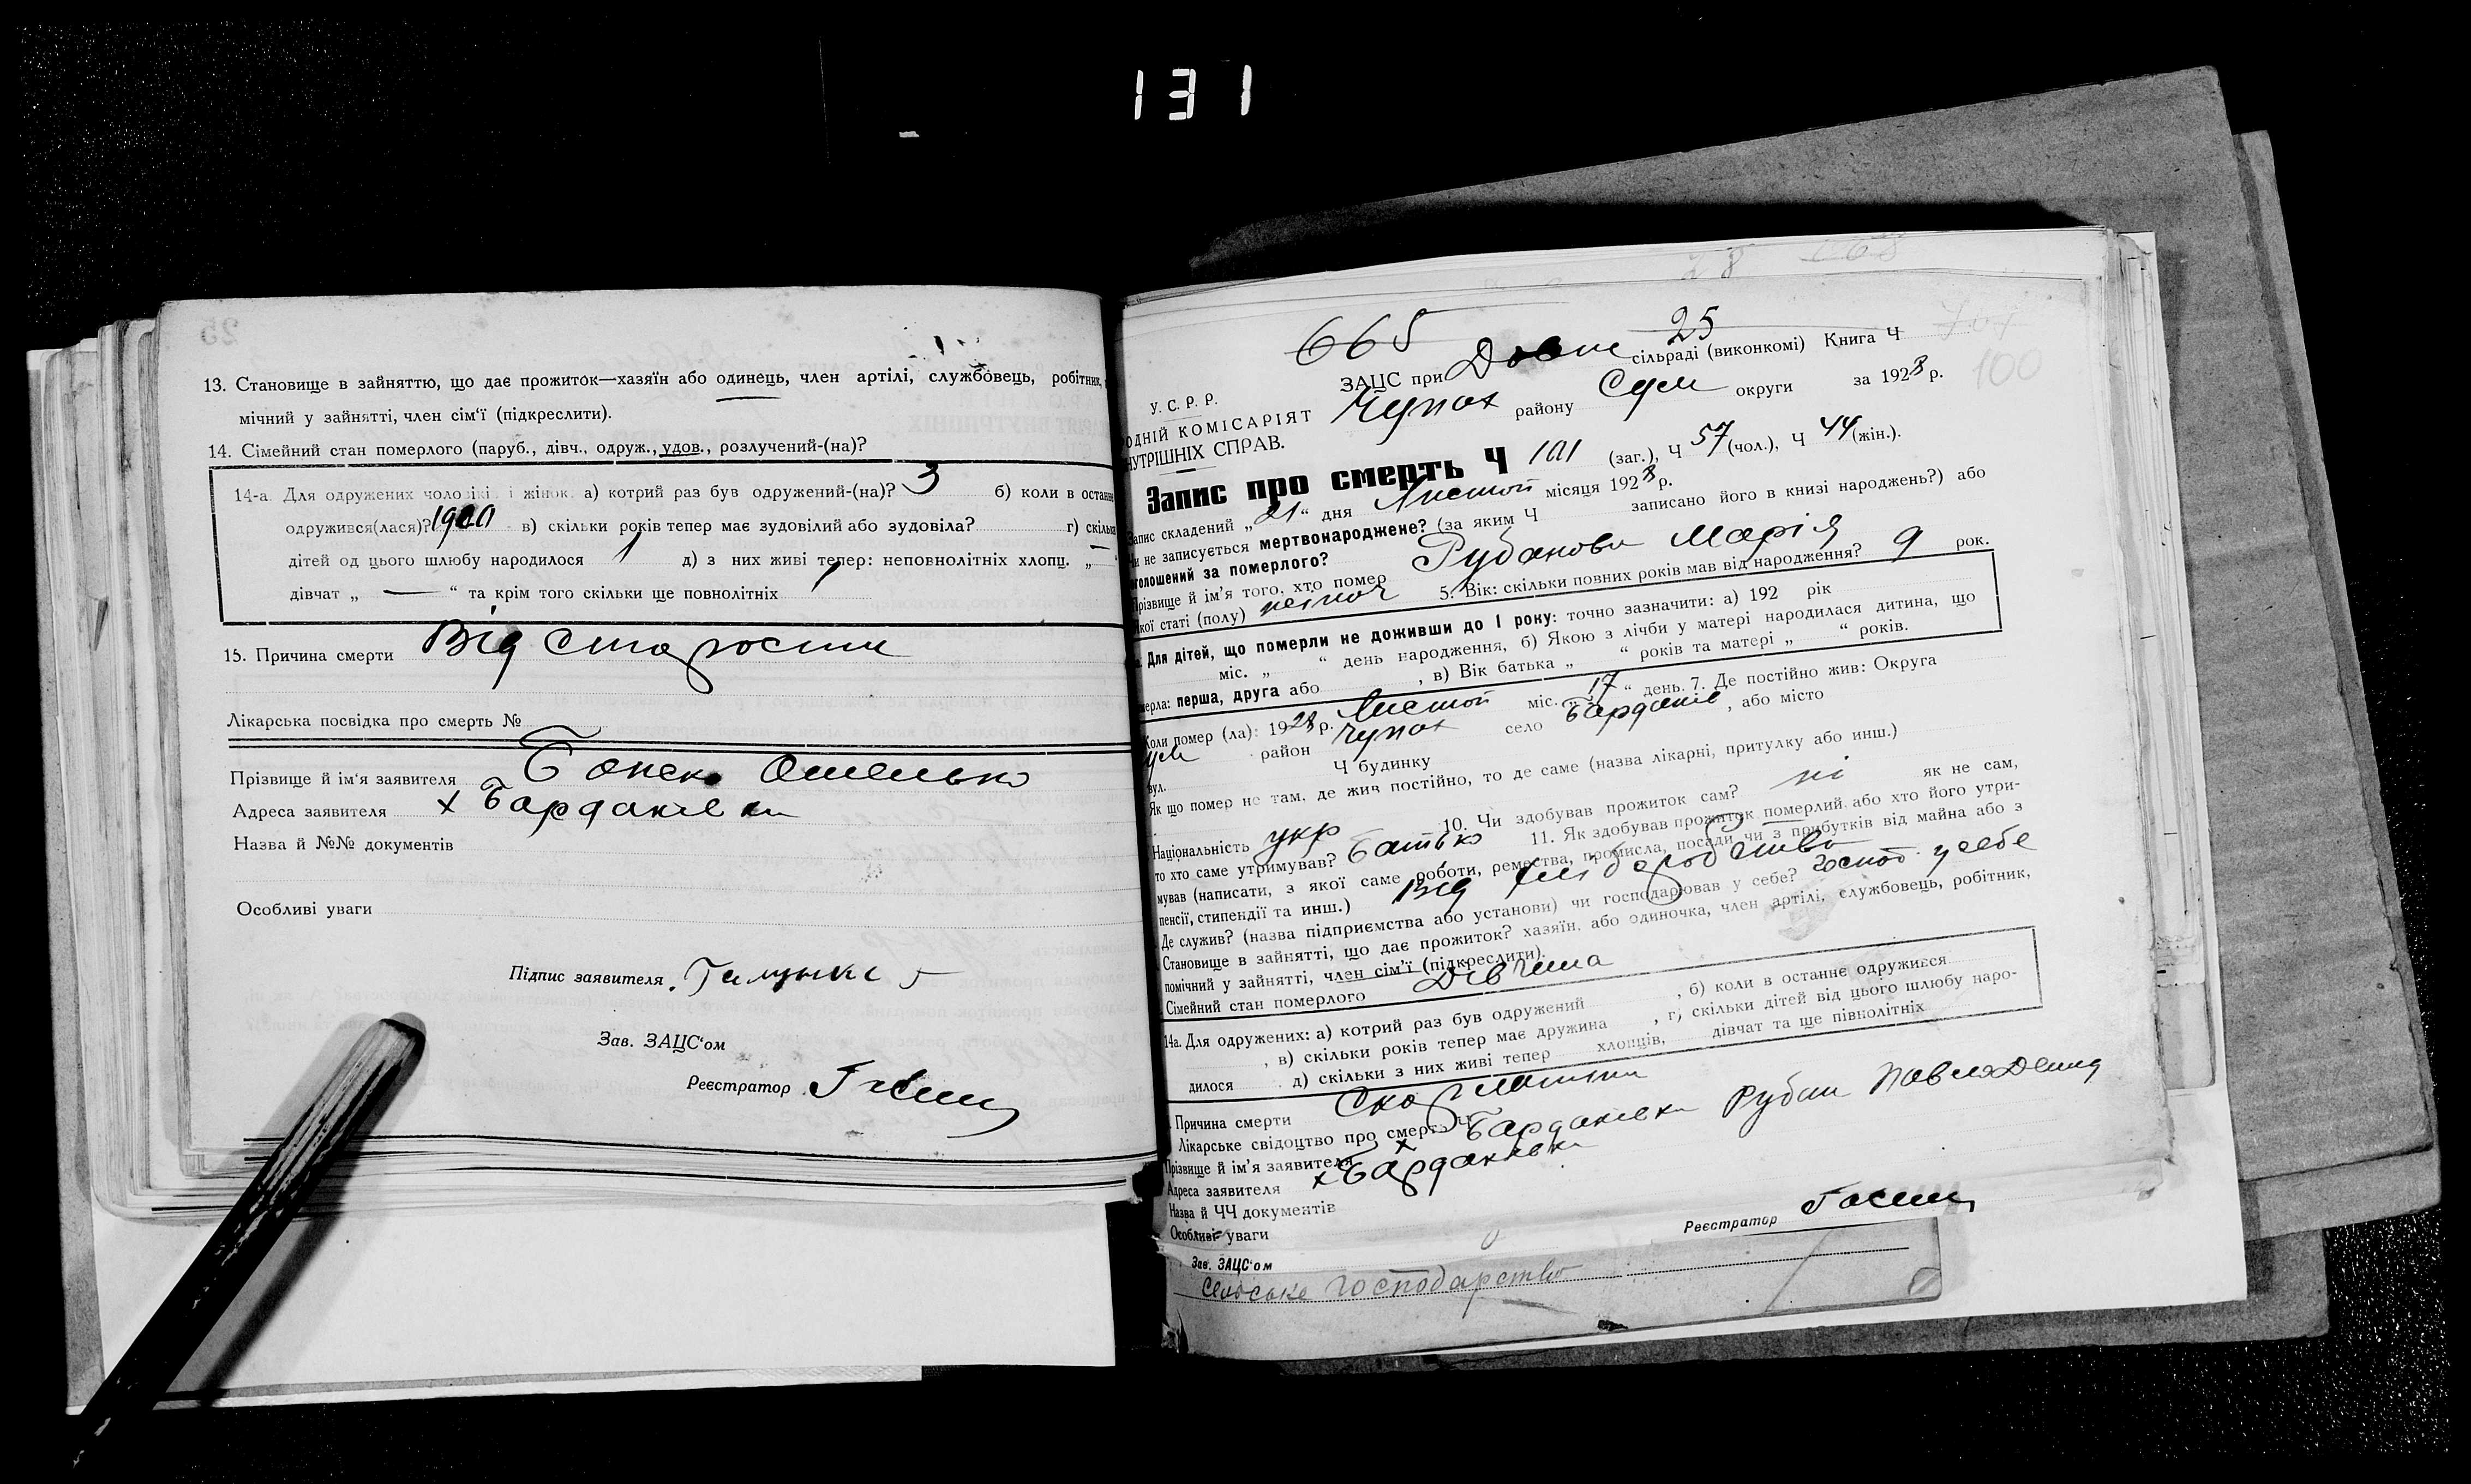 131
13. Становище в зайняттю, що дає прожиток—хазяїн або одинець, член артілі, службовець, робітник,
мічний у зайнятті, член сім'ї (підкреслити).
14. Сімейний стан померлого (паруб., дівч., одруж., удов., розлучений-(на)?
14-а. Для одружених чоловіків і жінок а) котрий раз був одружений-(на)? 3 б) коли в останн
одружився(лася)? 1900 в) скільки років тепер має зудовілий або зудовіла? г) скільки
дітей од цього шлюбу народилося 1 д) з них живі тепер: неповнолітніх хлопц. „—“
дівчат „ — “ та крім того скільки ще повнолітніх 1
15. Причина смерти Від старости
Лікарська посвідка про смерть №
Прізвище й ім'я заявителя Омелько
Адреса заявителя х Бардаківка
Назва й №№ документів
Особливі уваги
Підпис заявителя
Зав. ЗАЦС'ом
Реєстратор
28 668
665 25
ЗАЦС при Довж сільраді (виконкомі) Книга Ч
100
У. С. Р. Р.
ОДНІЙ КОМІСАРІЯТ Чупах району Сум округи за 1928 р.
НУТРІШНІХ СПРАВ.
Запис про смерть Ч 101 (заг.), Ч 57 (чол.), Ч 44 (жін.).
Запис складений „21“ дня Листоп місяця 1928 р.
Чи не записується мертвонароджене? (за яким Ч записано його в книзі народжень?) або
оголошений за померлого?
Прізвище й ім'я того, хто помер Рубанова Марія
якої статі (полу) жіноч 5. Вік: скільки повних років мав від народження? 9 рок.
а. Для дітей, що померли не доживши до 1 року: точно зазначити: а) 192 рік
міс. „ “ день народження, б) Якою з лічби у матері народилася дитина, що
мерла: перша, друга або , в) Вік батька „ “ років та матері „ “ років.
Коли помер (ла): 1928 р. Листоп міс. „17“ день. 7. Де постійно жив: Округа
Сум район Чупах село Бардаків, або місто
вул. Ч будинку
Як що помер не там, де жив постійно, то де саме (назва лікарні, притулку або инш.)
Національність укр 10. Чи здобував прожиток сам? ні як не сам,
то хто саме утримував? Батько 11. Як здобував прожиток померлий або хто його утри-
мував (написати, з якої саме роботи, ремества, промисла, посади чи з прибутків від майна або з
пенсії, стипендії та инш.) Від хліборобства
Де служив? (назва підприємства або установи) чи господарював у себе? господ. у себе
Становище в зайнятті, що дає прожиток? хазяїн. або одиночка, член артілі, службовець, робітник,
помічний у зайнятті, член сім'ї (підкреслити).
Сімейний стан померлого Дівчина
14а. Для одружених: а) котрий раз був одружений , б) коли в останнє одружився
, в) скільки років тепер має дружина , г) скільки дітей від цього шлюбу наро-
дилося д) скільки з них живі тепер хлопців, дівчат та ще півнолітніх
Причина смерти Скарлатина
Лікарське свідоцтво про смерть Ч
Прізвище й ім'я заявителя х Бардаківка Рубан Павло
Адреса заявителя х Бардаківка
Назва й ЧЧ документів
Особливі уваги
Реєстратор
Зав. ЗАЦС'ом
сельське господарство